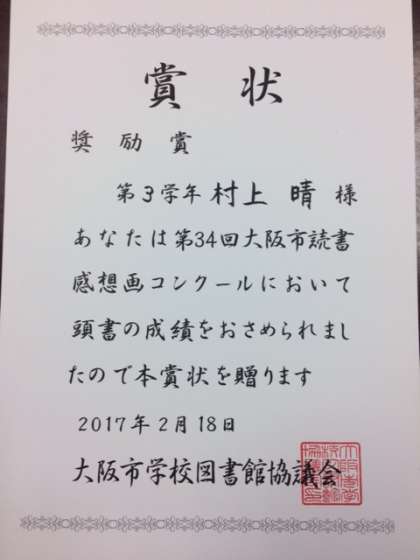 賞状
奨励賞
第3学年 村上 晴 様
あなたは第34回大阪市読書
感想画コンクールにおいて
頭書の成績をおさめられまし
たので本賞状を贈ります
2017年2月18日
大阪市学校図書館協議会